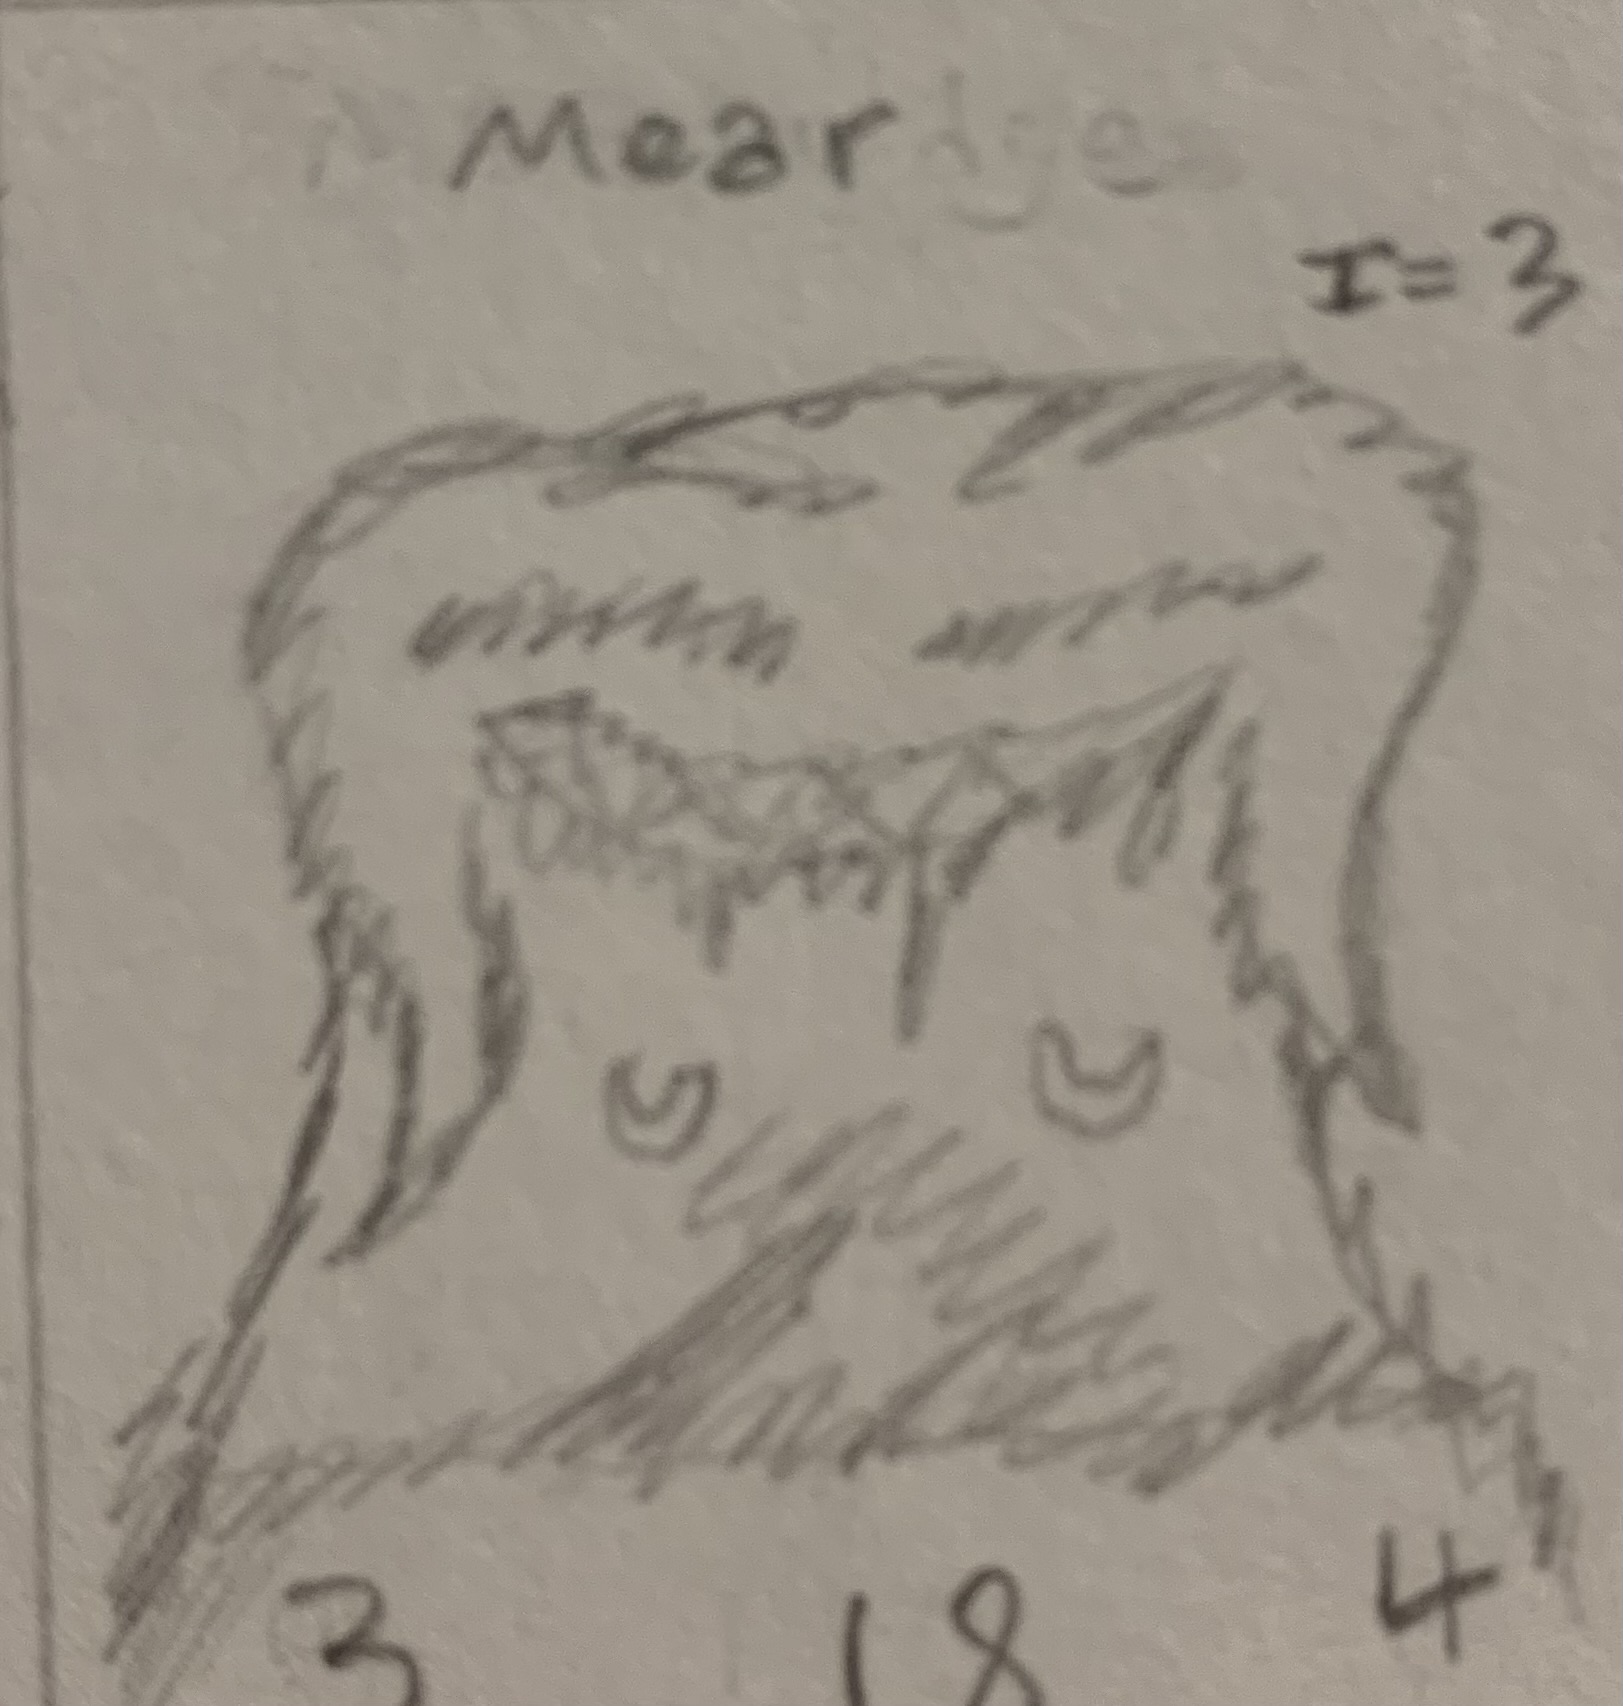 Mear
I=3
3 18 4